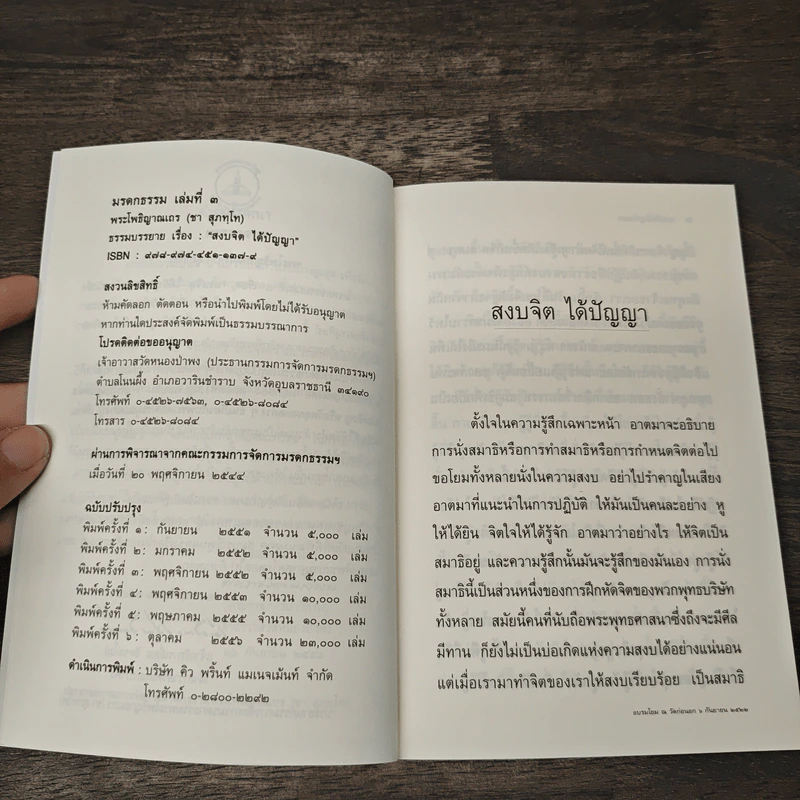 มรดกธรรม เล่มที่ ๓
พระโพธิญาณเถร (ชา สุภทฺโท)
ธรรมบรรยาย เรื่อง : "สงบจิต ได้ปัญญา"
ISBN : ๙๗๘-๙๗๔-๔๕๑-๑๓๗-๙
สงวนลิขสิทธิ์
ห้ามคัดลอก ตัดตอน หรือนำไปพิมพ์โดยไม่ได้รับอนุญาต
หากท่านใดประสงค์จัดพิมพ์เป็นธรรมบรรณาการ
โปรดติดต่อขออนุญาต
เจ้าอาวาสวัดหนองป่าพง (ประธานกรรมการจัดการมรดกธรรมฯ)
ตำบลโนนผึ้ง อำเภอวารินชำราบ จังหวัดอุบลราชธานี ๓๔๑๙๐
โทรศัพท์ ๐-๔๕๒๖-๗๕๖๓, ๐-๔๕๒๖-๘๐๘๔
โทรสาร ๐-๔๕๒๖-๘๐๘๔
ผ่านการพิจารณาจากคณะกรรมการจัดการมรดกธรรมฯ
เมื่อวันที่ ๒๐ พฤศจิกายน ๒๕๔๔
ฉบับปรับปรุง
พิมพ์ครั้งที่ ๑ : กันยายน ๒๕๕๑ จำนวน ๕,๐๐๐ เล่ม
พิมพ์ครั้งที่ ๒ : มกราคม ๒๕๕๒ จำนวน ๕,๐๐๐ เล่ม
พิมพ์ครั้งที่ ๓ : พฤศจิกายน ๒๕๕๒ จำนวน ๕,๐๐๐ เล่ม
พิมพ์ครั้งที่ ๔ : พฤศจิกายน ๒๕๕๓ จำนวน ๑๐,๐๐๐ เล่ม
พิมพ์ครั้งที่ ๕ : พฤษภาคม ๒๕๕๕ จำนวน ๑๐,๐๐๐ เล่ม
พิมพ์ครั้งที่ ๖ : ตุลาคม ๒๕๕๖ จำนวน ๒๓,๐๐๐ เล่ม
ดำเนินการพิมพ์ : บริษัท คิว พริ้นท์ แมเนจเม้นท์ จำกัด
โทรศัพท์ ๐-๒๘๐๐-๒๒๙๒
สงบจิต ได้ปัญญา
ตั้งใจในความรู้สึกเฉพาะหน้า อาตมาจะอธิบาย
การนั่งสมาธิหรือการทำสมาธิหรือการกำหนดจิตต่อไป
ขอโยมทั้งหลายนั่งในความสงบ อย่าไปรำคาญในเสียง
อาตมาที่แนะนำในการปฏิบัติ ให้มันเป็นคนละอย่าง หู
ให้ได้ยิน จิตใจให้ได้รู้จัก อาตมาว่าอย่างไร ให้จิตเป็น
สมาธิอยู่ และความรู้สึกนั้นมันจะรู้สึกของมันเอง การนั่ง
สมาธินี้เป็นส่วนหนึ่งของการฝึกหัดจิตของพวกพุทธบริษัท
ทั้งหลาย สมัยนี้คนที่นับถือพระพุทธศาสนาซึ่งถึงจะมีศีล
มีทาน ก็ยังไม่เป็นบ่อเกิดแห่งความสงบได้อย่างแน่นอน
แต่เมื่อเรามาทำจิตของเราให้สงบเรียบร้อย เป็นสมาธิ
อบรมโยม ณ วัดก่อนอก ๖ กันยายน ๒๕๒๒